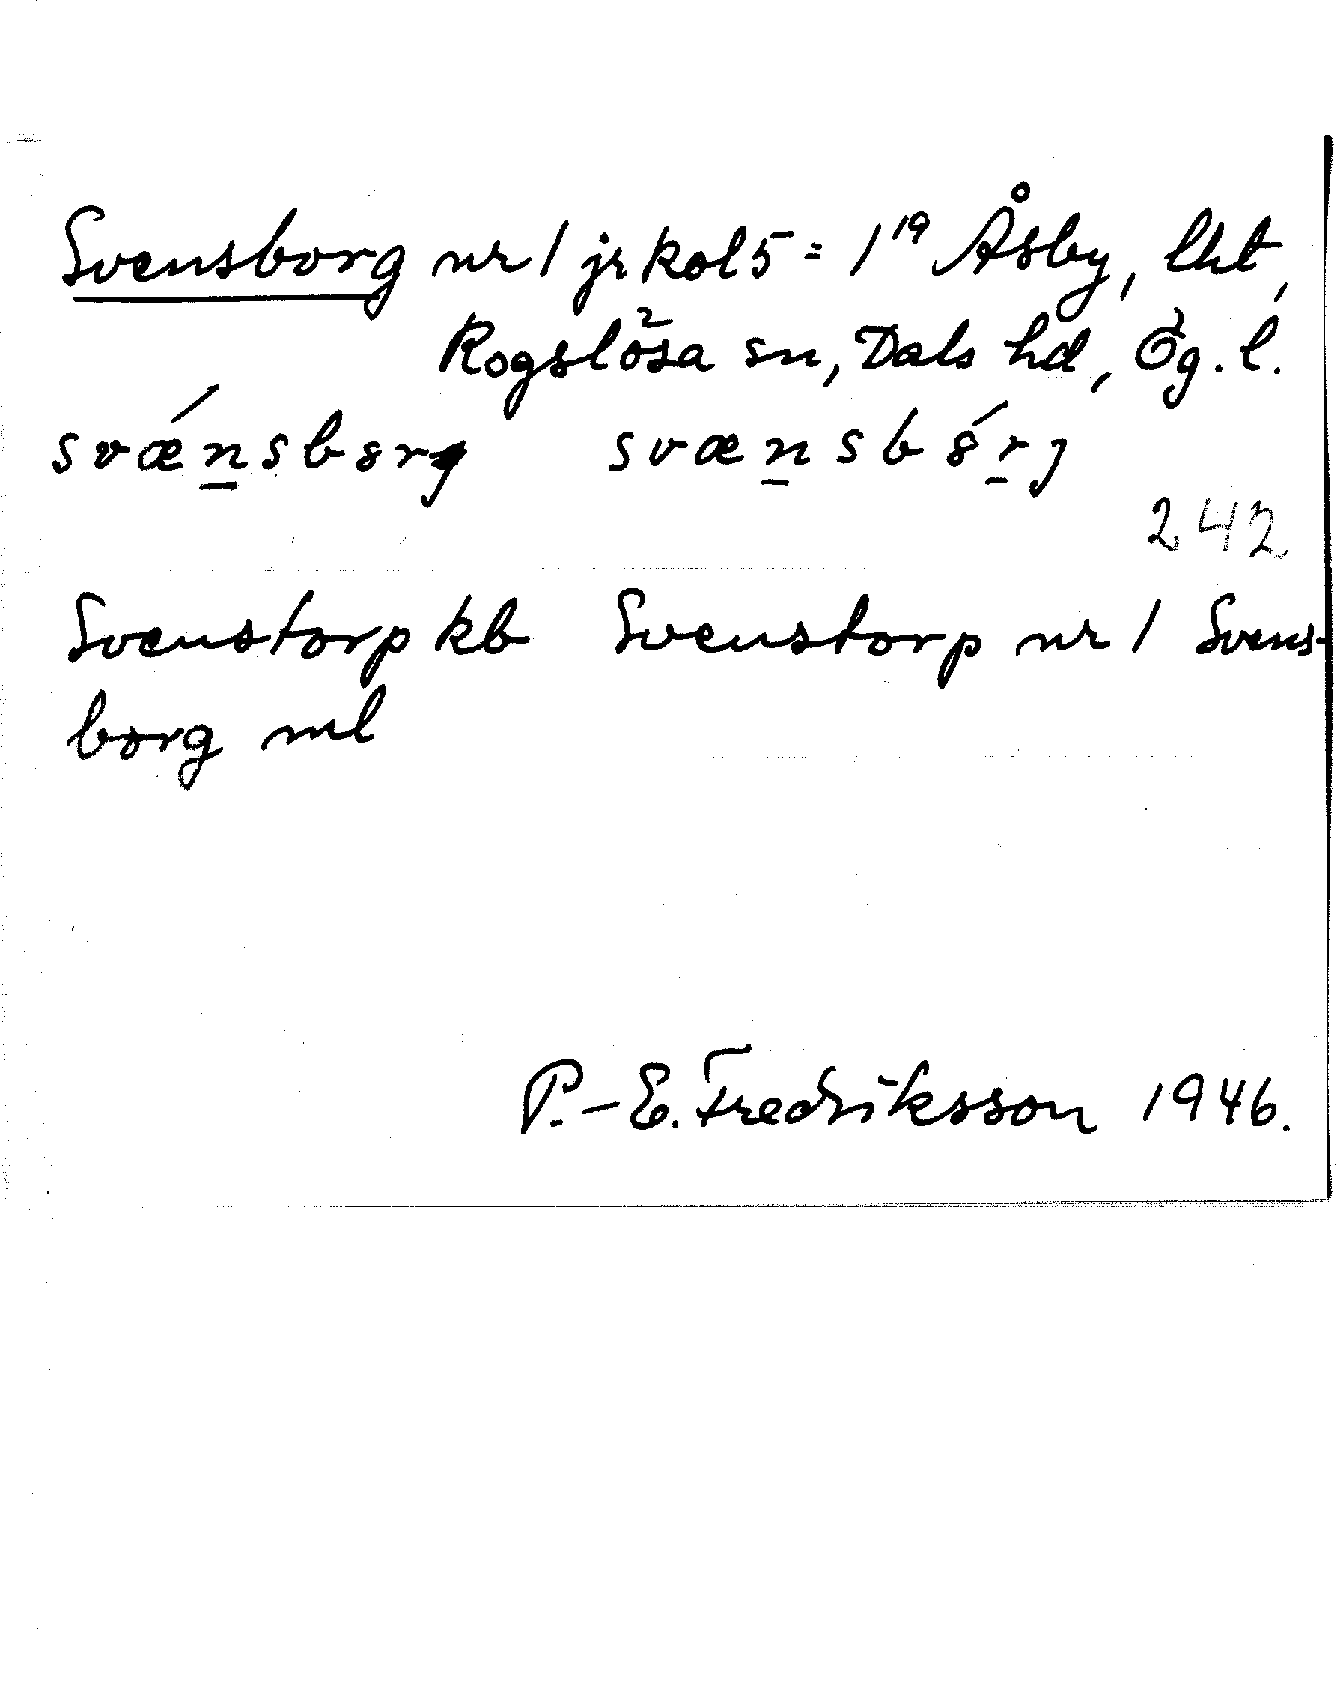 Svensborg nr 1 jr kol 5 = 1¹⁹ Åsby, lht,
Rogslösa sn, Dals hd, Ög. l.
svǽnsbȣrj svænsbȣ́rj
242
Svenstorp kb Svenstorp nr 1 Svens-
borg ml
P.-E. Fredriksson 1946.